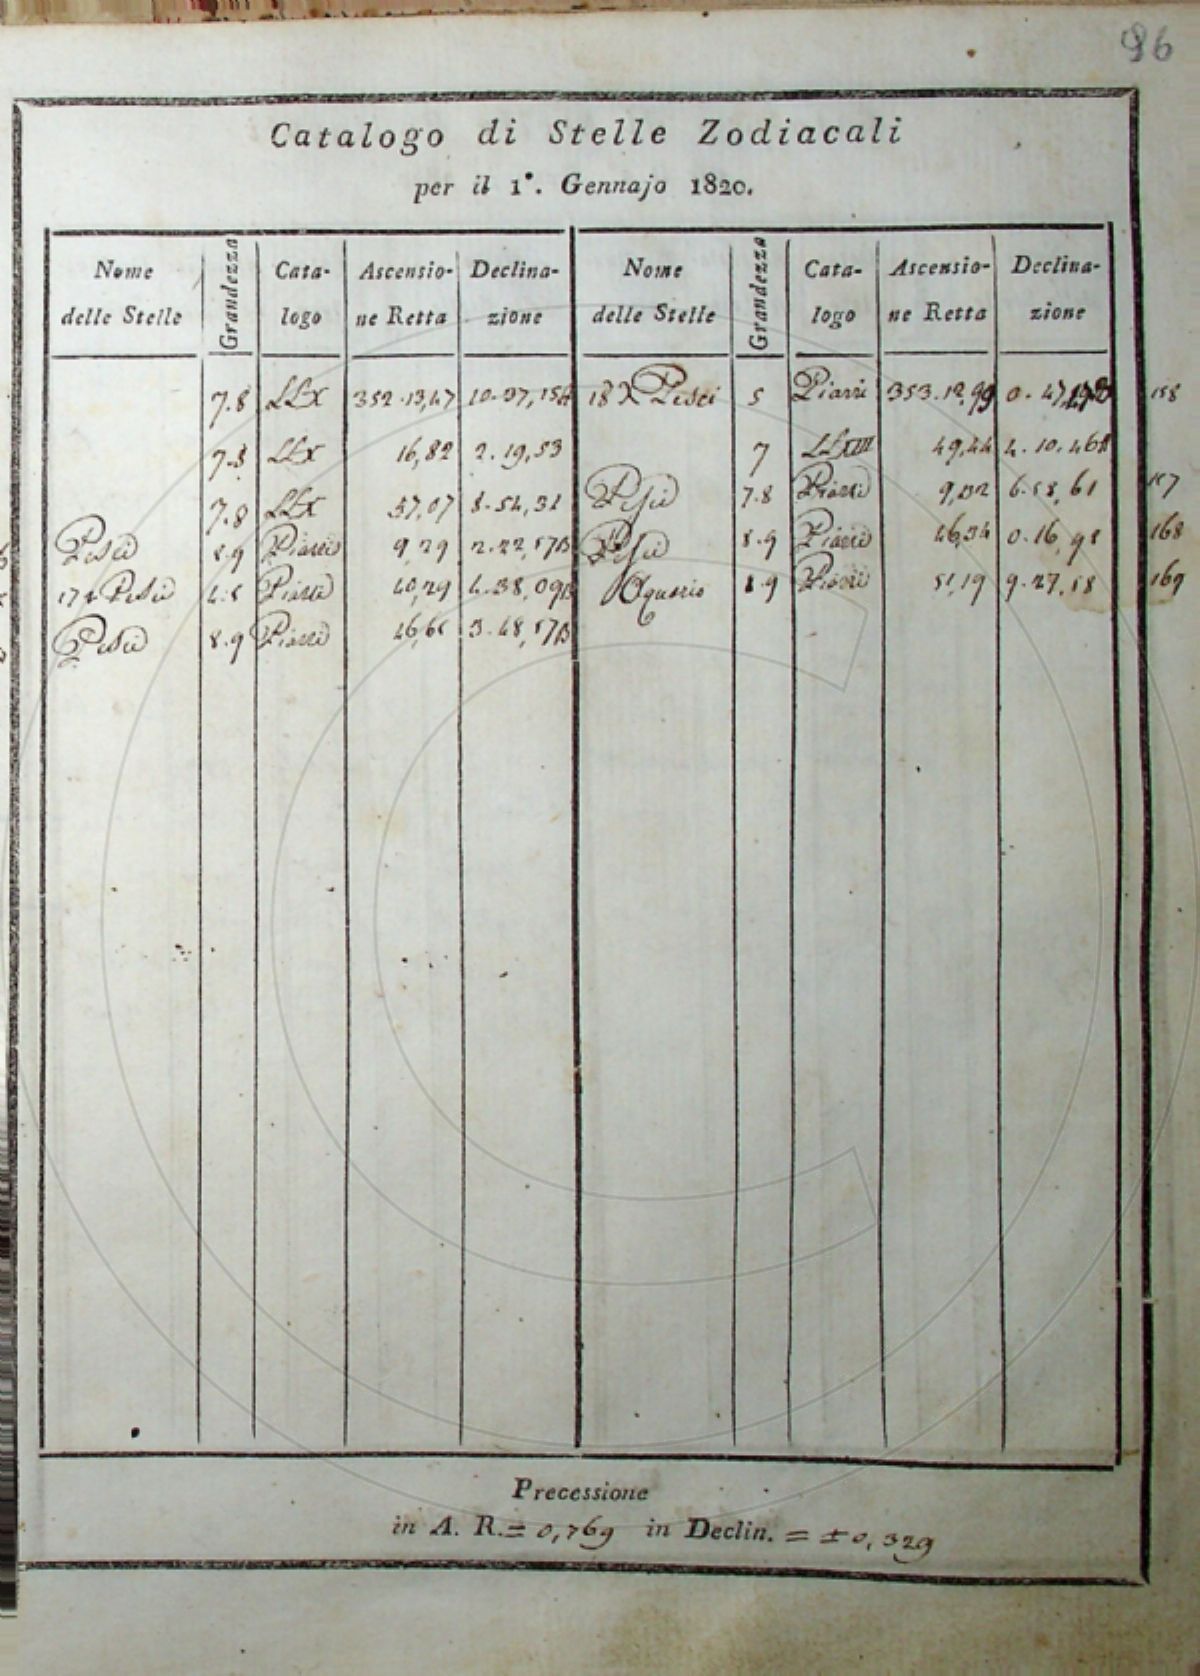 96
Catalogo di Stelle Zodiacali
per il 1°. Gennajo 1820.
Nome delle Stelle Grandezza Cata-logo Ascensio-ne Retta Declina-zione
7.8 LLX 352.13,47 10.37,15A
7.8 LLX 16,82 2.19,53
7.8 LLX 37,07 8.54,31
Pesci 8.9 Piazzi 9,29 2.22,57B
17 Pesci 4.5 Piazzi 40,29 4.38,09B
Pesci 8.9 Piazzi 46,61 3.48,57B
Nome delle Stelle Grandezza Cata-logo Ascensio-ne Retta Declina-zione
18 λ Pesci 5 Piazzi 353.12,99 0.47, 158
7 LLXIII 49,44 4.10.46A
Pesci 7.8 Piazzi 9,02 6.58,61
Pesci 8.9 Piazzi 46,34 0.16,98 168
Aquario 8.9 Piazzi 51,19 9.27,58 169
Precessione
in A. R. = 0,769 in Declin. = ±0,329